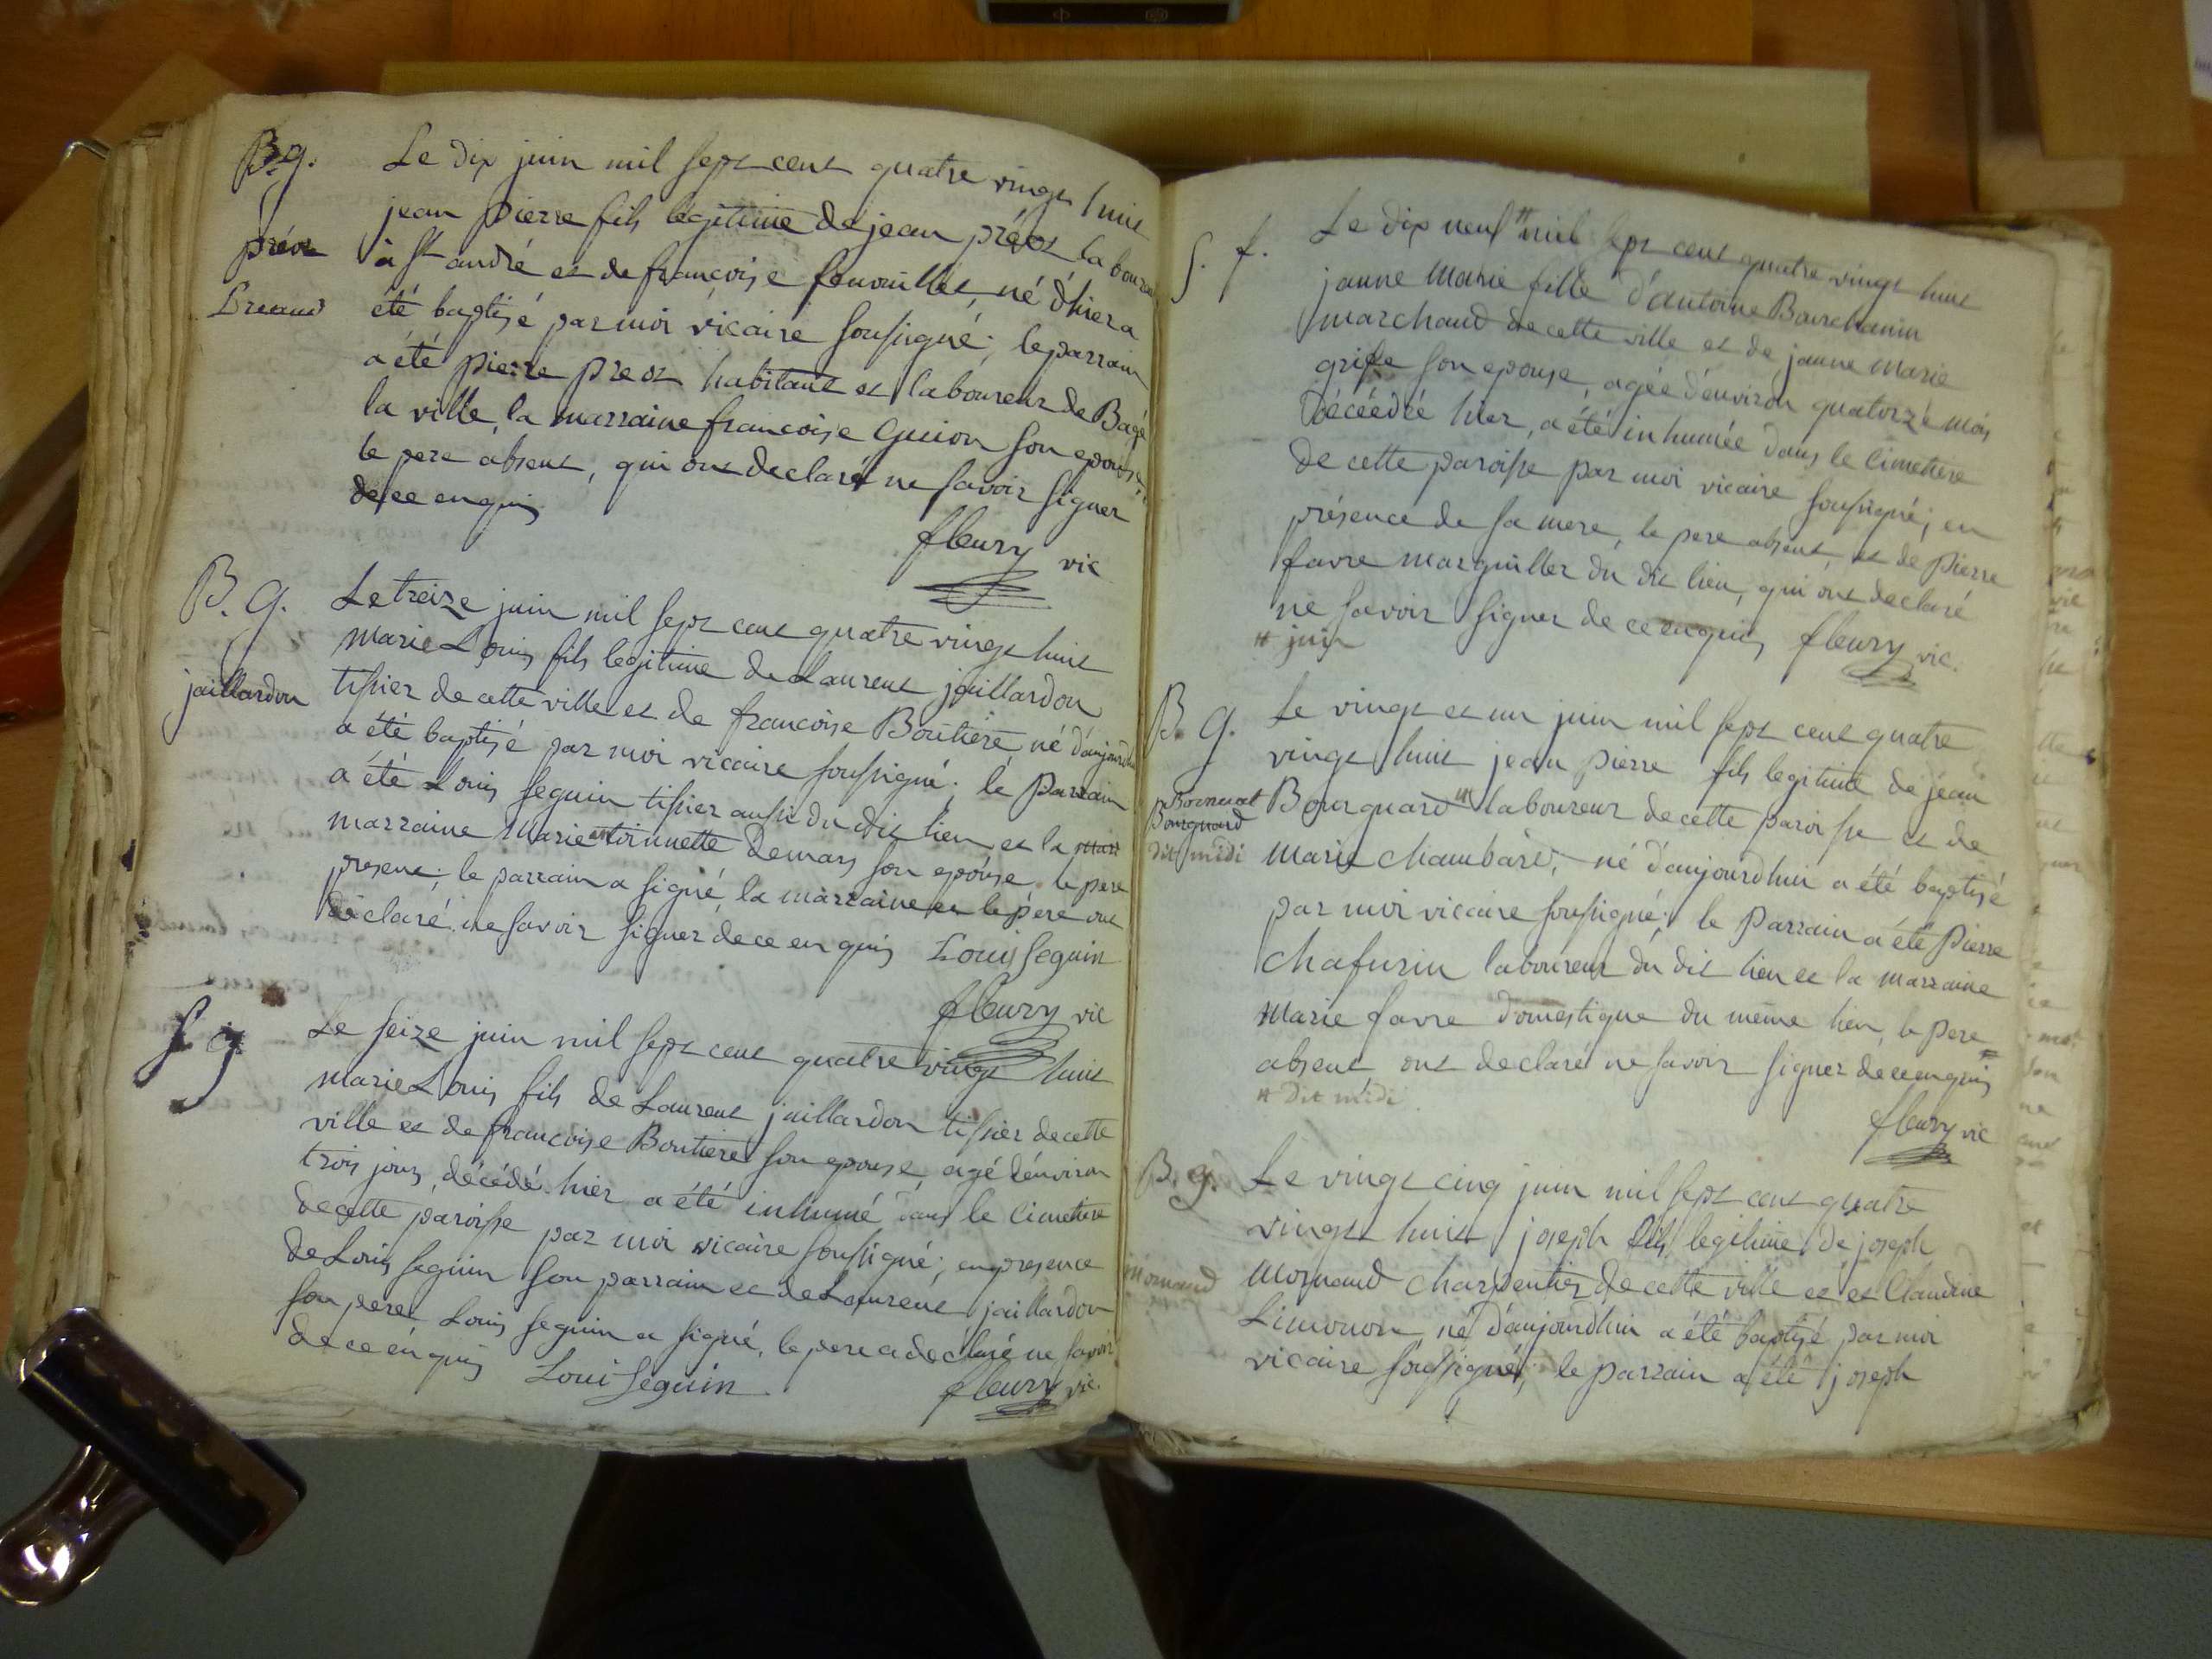 B. g.
Le dix juin mil sept cent quatre vingt huit
jean pierre fils légitime de jean préost laboureur
préost
à st andré et de françoise fenouillet, né d'hier a
été baptisé par moi vicaire soussigné; le parrain
a été pierre preost habitant et laboureur de Bagé
la ville, la marraine françoise Guion son epouse,
le pere absent, qui ont declaré ne savoir signer
de ce enquis
fleury vic
B. G.
Le treize juin mil sept cent quatre vingt huit
marie Louis fils legitime de Laurent jaillardon
jaillardon
tissier de cette ville et de francoise Boutiere, né d'aujourd'hui
a été baptisé par moi vicaire soussigné; le parrain
a été Louis seguin tissier aussi du dit lieu et la
marraine marie antoinnette demars son epouse, le pere
present; le parrain a signé, la marraine et le pere ont
declaré ne savoir signer de ce enquis Louis seguin
fleury vic
S. g.
Le seize juin mil sept cent quatre vingt huit
marie Louis fils de Laurent jaillardon tissier de cette
ville et de françoise Boutiere son epouse, agé d'environ
trois jours, décédé hier a été inhumé dans le cimetiere
de cette paroisse par moi vicaire soussigné; en presence
de Louis seguin son parrain et de Laurent jaillardon
son pere Louis seguin a signé, le pere a déclaré ne savoir
de ce enquis Loui seguin
fleury vic.
S. f.
Le dix neuf # mil sept cent quatre vingt huit
janne marie fille d'antoine Bourchanin
marchand de cette ville et de janne marie
grife son epouse, agée d'environ quatorze mois
décédée hier, a été inhumée dans le cimetiere
de cette paroisse par moi vicaire soussigné; en
présence de sa mere, le pere absent, et de pierre
favre marguiller du dit lieu, qui ont declaré
ne savoir signer de ce enquis fleury vic.
# juin
B. G.
Le vingt et un juin mil sept cent quatre
vingt huit jean pierre fils legitime de jean
Bourguard
Bourguard # laboureur de cette paroisse et de
dit midi
marie chambard, né d'aujourdhui a été baptisé
par moi vicaire soussigné; le parrain a été pierre
chafurin laboureur du dit lieu et la marraine
marie favre domestique du même lieu, le pere
absent ont declaré ne savoir signer de ce enquis
# dit midi
fleury vic
B. g.
Le vingt cinq juin mil sept cent quatre
vingt huit joseph fils legitime de joseph
mornand
mornand charpentier de cette ville et et Claudine
Limonon, né d'aujourdhui a été baptisé par moi
vicaire soussigné; le parrain a été joseph